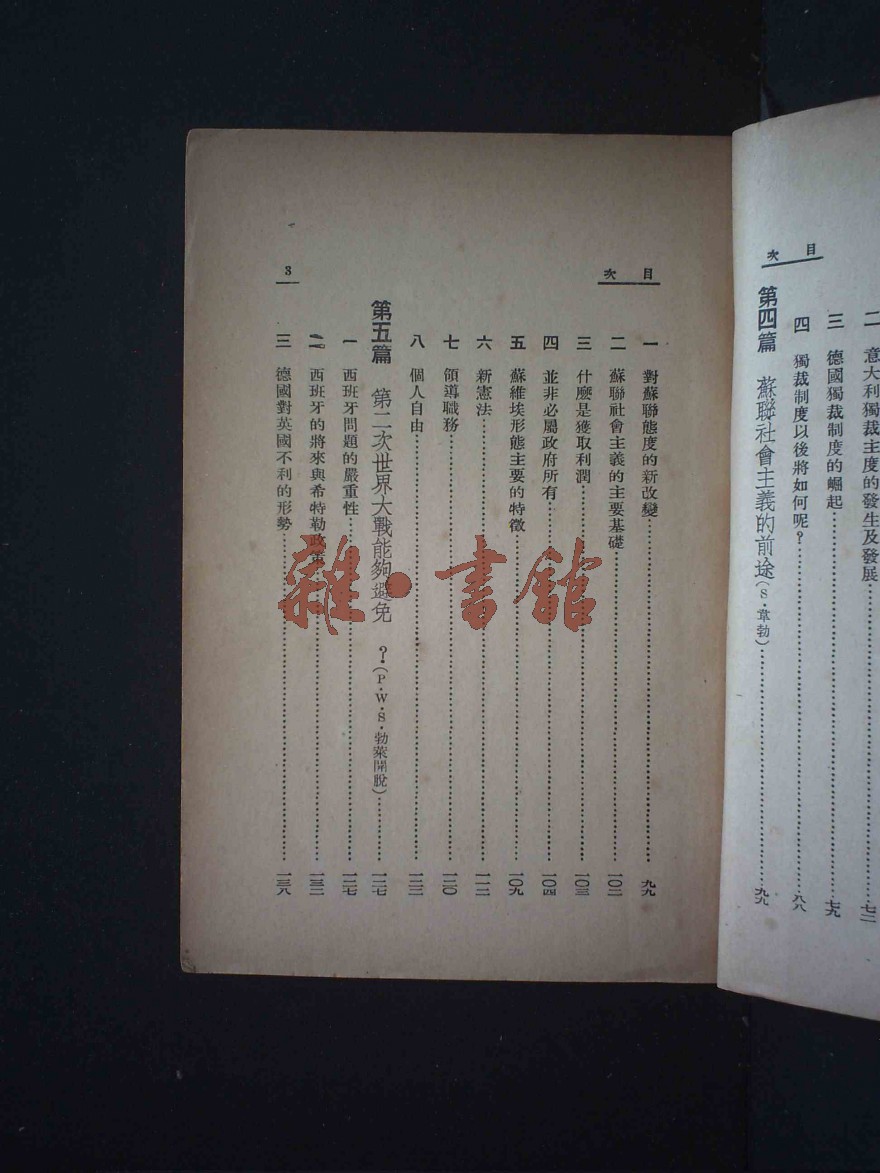 目次
二 意大利獨裁主度的發生及發展……七二
三 德國獨裁制度的崛起……七九
四 獨裁制度以後將如何呢？……八八
第四篇 蘇聯社會主義的前途（S·韋勃）……九九
目次
一 對蘇聯態度的新改變……九九
二 蘇聯社會主義的主要基礎……一〇二
三 什麼是獲取利潤……一〇三
四 並非必屬政府所有……一〇四
五 蘇維埃形態主要的特徵……一〇九
六 新憲法……一一二
七 領導職務……一二〇
八 個人自由……一二三
第五篇 第二次世界大戰能夠避免？（P·W·S·勃萊開脫）……一二七
一 西班牙問題的嚴重性……一二七
二 西班牙的將來與希特勒政策……一三二
三 德國對英國不利的形勢……一三八
3
雜·書館